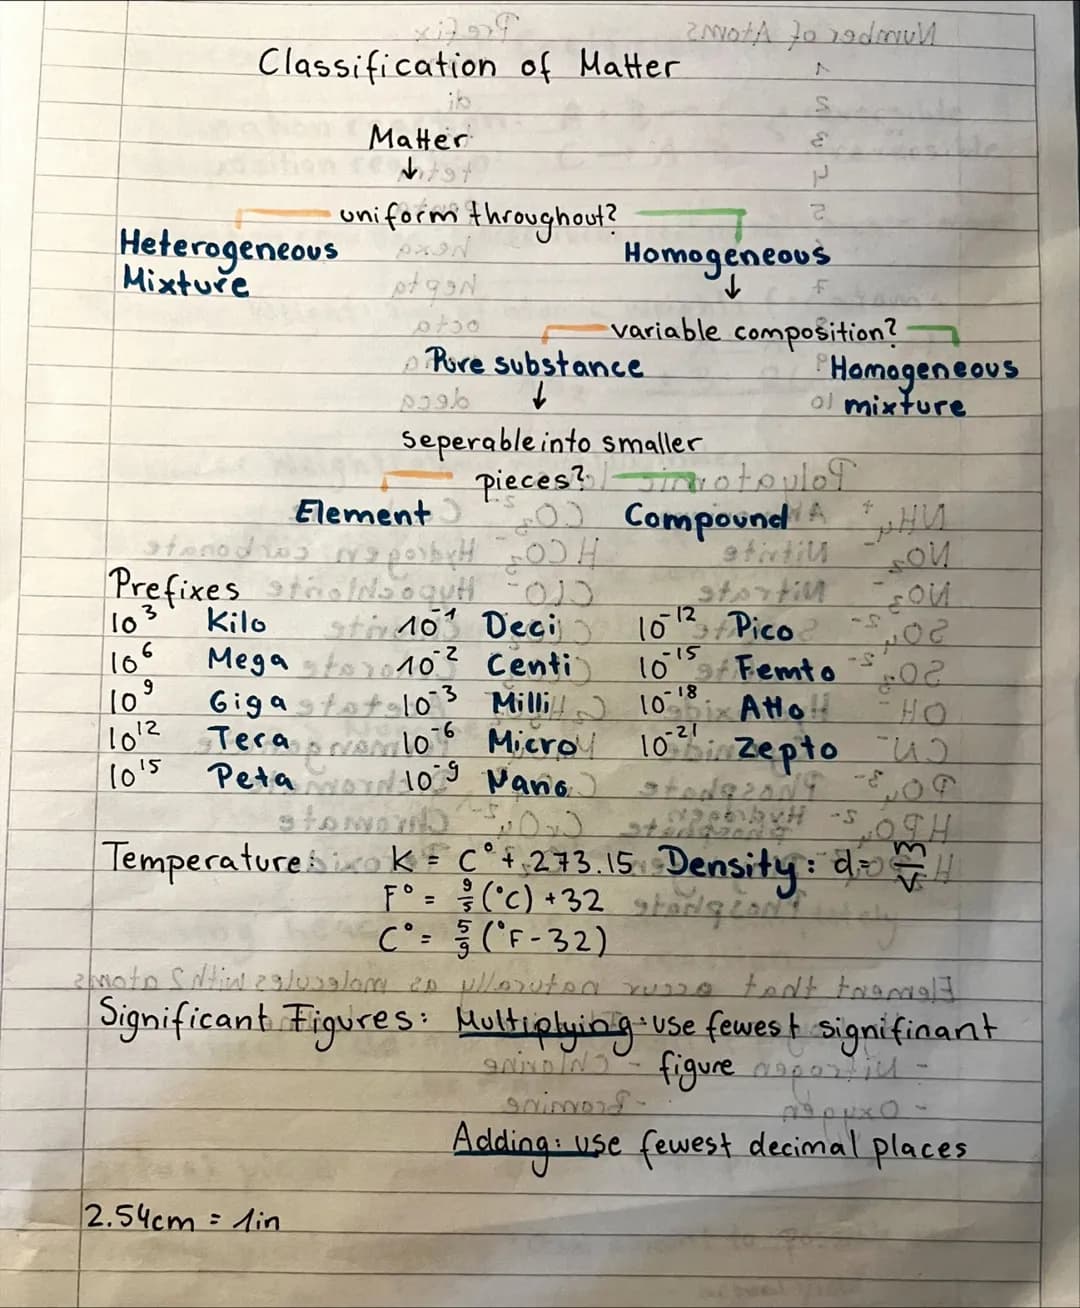 Classification of Matter
Matter
↓
uniform throughout?
Heterogeneous Mixture
Homogeneous
↓
variable composition?
Pure substance
Homogeneous mixture
↓
seperable into smaller
pieces?
Element Compound
Prefixes
10³ Kilo 10⁻¹ Deci 10⁻¹² Pico
10⁶ Mega 10⁻² Centi 10⁻¹⁵ Femto
10⁹ Giga 10⁻³ Milli 10⁻¹⁸ Atto
10¹² Tera 10⁻⁶ Micro 10⁻²¹ Zepto
10¹⁵ Peta 10⁻⁹ Nano
Temperature: K = C° + 273.15 Density: d = m/V
F° = 9/5 (°C) + 32
C° = 5/9 (°F - 32)
Significant Figures: Multiplying: use fewest signifinant
figure
Adding: use fewest decimal places
2.54cm = 1in